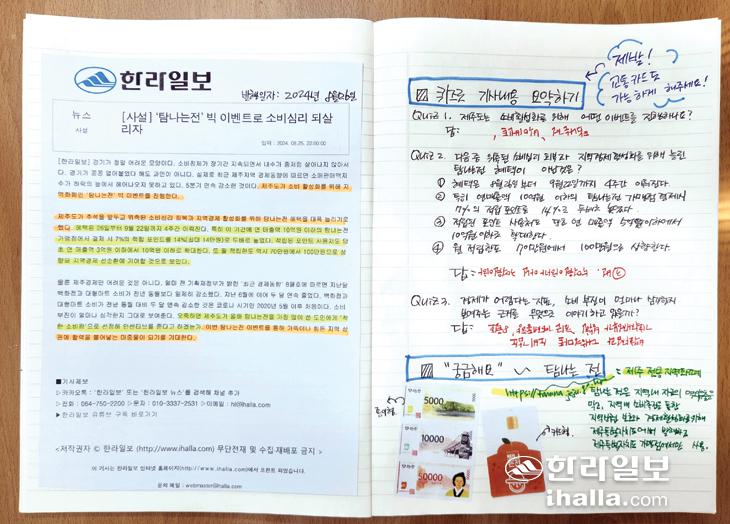 한라일보
발행일자: 2024년 8월 26일
뉴스
사설
[사설] '탐나는전' 빅 이벤트로 소비심리 되살
리자
입력 : 2024. 08.25. 22:00:00
[한라일보] 경기가 정말 어려운 모양이다. 소비침체가 장기간 지속되면서 내수가 좀처럼 살아나지 않아서
다. 경기가 꽁꽁 얼어붙었다 해도 과언이 아니다. 실제로 최근 제주지역 경제동향에 따르면 소매판매액지
수가 하락의 늪에서 헤어나오지 못하고 있다. 5분기 연속 감소한 것이다. 제주도가 소비 활성화를 위해 지
역화폐인 '탐나는전' 빅 이벤트를 진행한다.
제주도가 추석을 앞두고 위축된 소비심리 회복과 지역경제 활성화를 위해 탐나는전 혜택을 대폭 늘리기로
했다. 혜택은 26일부터 9월 22일까지 4주간 이뤄진다. 특히 이 기간에 연 매출액 10억원 이하의 탐나는전
가맹점에서 결제 시 7%의 적립 포인트를 14%(최대 14만원)로 두배로 높인다. 적립된 포인트 사용지도 당
초 연 매출액 3억원 이하에서 10억원 이하로 확대한다. 또 월 적립한도 역시 70만원에서 100만원으로 상
향해 지역경제 선순환에 기여할 것으로 보인다.
물론 제주경제만 어려운 것은 아니다. 얼마 전 기획재정부가 밝힌 '최근 경제동향' 8월호에 따르면 지난달
백화점과 대형마트 소비가 전년 동월보다 일제히 감소했다. 지난 6월에 이어 두 달 연속 줄었다. 백화점과
대형마트 소비가 전년 동월 대비 두 달 연속 감소한 것은 코로나 시기인 2020년 5월 이후 처음이다. 소비
부진이 얼마나 심각한지 그대로 보여준다. 오죽하면 제주도가 올해 탐나는전을 가장 많이 쓴 도민에게 '착
한 소비왕'으로 선정해 인센티브를 준다고 하겠는가. 이번 탐나는전 이벤트를 통해 가뜩이나 힘든 지역 상
권에 활력을 불어넣는 마중물이 되기를 기대한다.
■기사제보
▷카카오톡 : '한라일보' 또는 '한라일보 뉴스'를 검색해 채널 추가
▷전화 : 064-750-2200 ▷문자 : 010-3337-2531 ▷이메일 : hl@ihalla.com
▶한라일보 유튜브 구독 바로가기
<저작권자 © 한라일보 (http://www.ihalla.com) 무단전재 및 수집·재배포 금지 >
이 기사는 한라일보 인터넷 홈페이지(http://www.ihalla.com)에서 프린트 되었습니다.
문의 메일 : webmaster@ihalla.com
제발!
교통카드도
가능하게 해주세요!
퀴즈로 기사내용 요약하기
Quiz 1. 제주도는 소비활성화를 위해 어떤 이벤트를 진행하나요?
답:
Quiz 2. 다음 중 위축된 소비심리 회복과 지역경제활성화를 위해 늘린
탐나는전 혜택이 아닌것은?
① 혜택은 8월 26일부터 9월 22일까지 4주간 이뤄진다.
② 특히 연매출액 10억원 이하의 탐나는전 가맹점 결제시
7%의 적립 포인트로 14%로 두배로 높인다.
③ 적립된 포인트 사용처도 당초 연 매출액 5억원이하에서
10억원 이하로 확대한다.
④ 월 적립한도 70만원에서 100만원으로 상향한다.
답:
Quiz 3. 경제가 어렵다는 지표, 소비 부진이 얼마나 심각한지
보여주는 근거를 무엇으로 이야기 하고 있을까?
답:
"궁금해요" ~ 탐나는 전
제주 전용 지역화폐
5000
10000
50000
카드형
탐나는 전은 지역내 자금의
막고, 지역내 소비촉진을 통한
지역상권 보호와 경제활성화를위해
제주특별자치도에서 발행하고
제주특별자치도 가맹점에서만 사용.
한라일보
ihalla.com